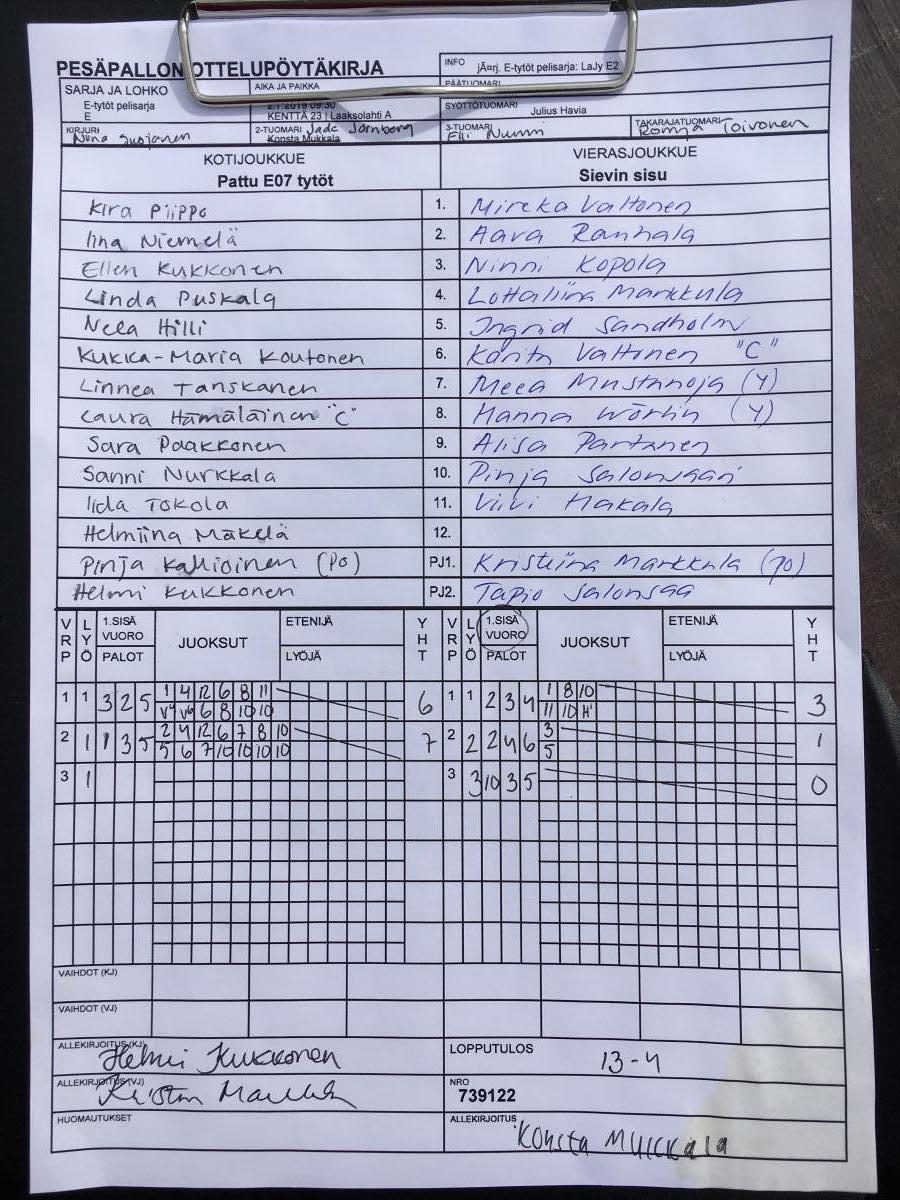 PESÄPALLON OTTELUPÖYTÄKIRJA
INFO jÃ¤rj. E-tytöt pelisarja: LaJy E2
SARJA JA LOHKO
AIKA JA PAIKKA
PÄÄTUOMARI
E-tytöt pelisarja
E
2.7.2019 09:30
KENTTÄ 23 | Laaksolahti A
SYÖTTÖTUOMARI Julius Havia
KIRJURI
2-TUOMARI Jade
Konsta Mukkala
3-TUOMARI Elli Nurmi
TAKARAJATUOMARI Ronja Toivonen
KOTIJOUKKUE VIERASJOUKKUE
Pattu E07 tytöt Sievin sisu
Kira Piippo 1. Mireka Valtonen
Iina Niemelä 2. Aava Ranhala
Ellen Kukkonen 3. Ninni Kopola
Linda Puskala 4. Lottaliina Markkula
Neea Hilli 5. Ingrid Sandholm
Kukka-Maria Koutonen 6. Karita Valtonen "C"
Linnea Tanskanen 7. Meea Mustanoja (Y)
Laura Hämäläinen "C" 8. Hanna Wörlin (Y)
Sara Paakkonen 9. Alisa Partanen
Sanni Nurkkala 10. Pinja Salonsaari
Iida Tokola 11. Viivi Hakala
Helmiina Mäkelä 12.
Pinja Kallioinen (PO) PJ1. Kristiina Markkula (po)
Helmi Kukkonen PJ2. Tapio Salonsaa
VRP LYÖ 1.SISÄ VUORO PALOT JUOKSUT ETENIJÄ LYÖJÄ YHT VRP LYÖ 1.SISÄ VUORO PALOT JUOKSUT ETENIJÄ LYÖJÄ YHT
1 1 3 2 5 1 4 12 6 8 11 6 1 1 2 3 4 1 8 10 3
6 8 10 10 11 10 H
2 1 1 3 5 2 4 12 6 7 8 10 7 2 2 2 4 6 3 1
5 6 7 10 10 10 10 5
3 1 3 3 10 3 5 0
VAIHDOT (KJ)
VAIHDOT (VJ)
ALLEKIRJOITUS (KJ) Helmi Kukkonen
LOPPUTULOS 13-4
ALLEKIRJOITUS (VJ)
NRO
739122
HUOMAUTUKSET
ALLEKIRJOITUS
Konsta Mukkala